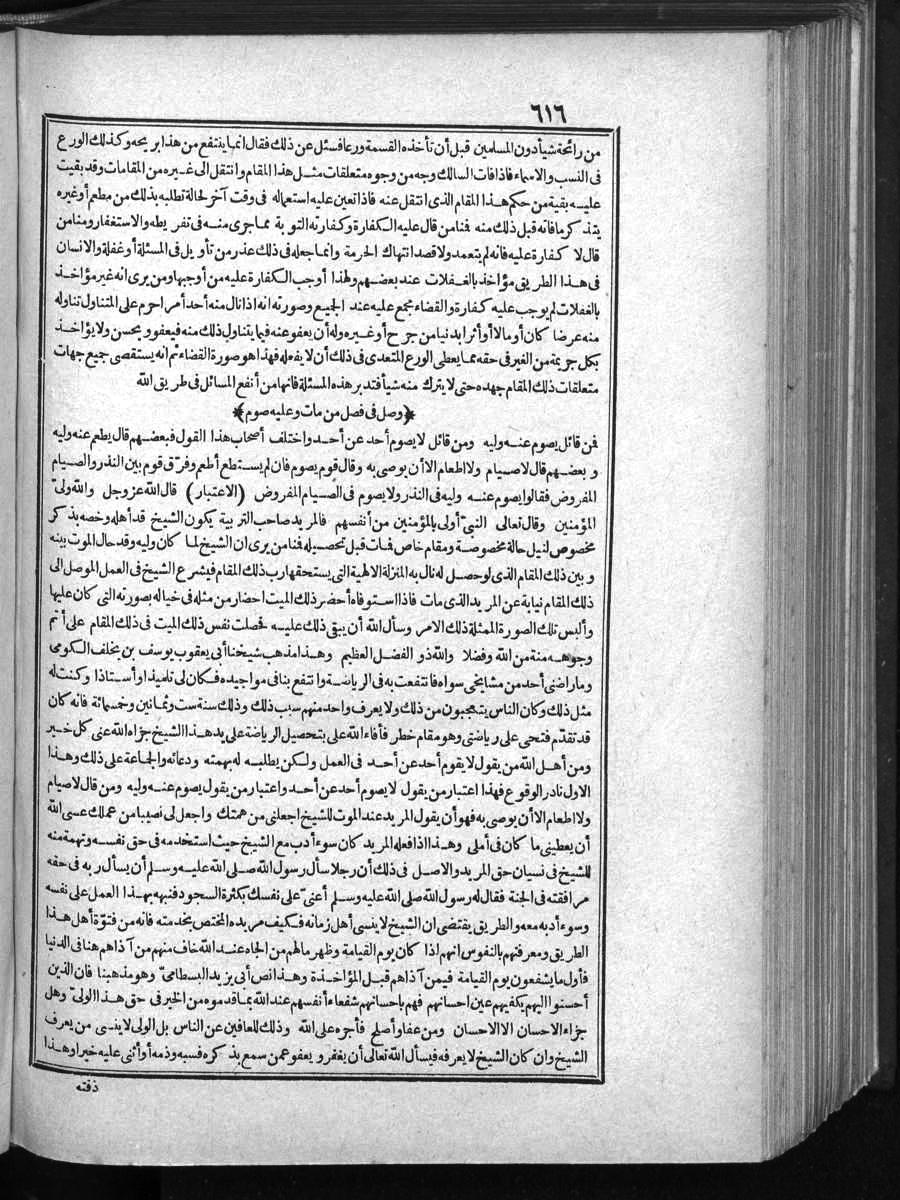 ٦١٦
من رائحة شيأ دون المسلمين قبل أن تأخذه القسمة ورعا فسئل عن ذلك فقال انما ينتفع من هذا بريحه وكذلك الورع
فى النسب والاسماء فاذا فات السالك وجه من وجوه متعلقات مثل هذا المقام وانتقل الى غيره من المقامات وقد بقيت
عليه بقية من حكم هذا المقام الذى انتقل عنه فاذا تعين عليه استعماله فى وقت آخر لحالة تطلبه بذلك من مطعم أو غيره
يتذكر ما فاته قبل ذلك منه فمنا من قال عليه الكفارة وكفارته التوبة مما جرى منه فى تفريطه والاستغفار ومنا من
قال لا كفارة عليه فانه لم يتعمد ولا قصد انتهاك الحرمة وانما جعله فى ذلك عذر من تأويل فى المسئلة أو غفلة والانسان
فى هذا الطريق مؤاخذ بالغفلات عند بعضهم ولهذا أوجب الكفارة عليه من أوجبها ومن يرى انه غير مؤاخذ
بالغفلات لم يوجب عليه كفارة والقضاء مجمع عليه عند الجميع وصورته انه اذا نال منه أحد أمرا حرم على المتناول تناوله
منه عرضا كان أو مالا أو أثرا بدنيا من جرح أو غيره وله أن يعفو عنه فيما يتناول ذلك منه فيعفو ويحسن ولا يؤاخذ
بكل جريمة من الغير فى حقه مما يعطى الورع المتعدى فى ذلك أن لا يفعله فهذا هو صورة القضاء ثم انه يستقصى جميع جهات
متعلقات ذلك المقام جهده حتى لا يترك منه شيأ فتدبر هذه المسئلة فانها من أنفع المسائل فى طريق الله
﴿وصل فى فصل من مات وعليه صوم﴾
فمن قائل يصوم عنه وليه ومن قائل لا يصوم أحد عن أحد واختلف أصحاب هذا القول فبعضهم قال يطعم عنه وليه
وبعضهم قال لا صيام ولا اطعام الا أن يوصى به وقال قوم يصوم فان لم يستطع أطعم وفرّق قوم بين النذر والصيام
المفروض فقالوا يصوم عنه وليه فى النذر ولا يصوم فى الصيام المفروض (الاعتبار) قال الله عز وجل والله ولىّ
المؤمنين وقال تعالى النبىّ أولى بالمؤمنين من أنفسهم فالمريد صاحب التربية يكون الشيخ قد أهله وخصه بذكر
مخصوص لنيل حالة مخصوصة ومقام خاص فمات قبل تحصيله فمنا من يرى ان الشيخ لما كان وليه وقد حال الموت بينه
وبين ذلك المقام الذى لو حصل له نال به المنزلة الالهية التى يستحقها رب ذلك المقام فيشرع الشيخ فى العمل الموصل الى
ذلك المقام نيابة عن المريد الذى مات فاذا استوفاه أحضر ذلك الميت احضار من مثله فى خياله بصورته التى كان عليها
وألبس تلك الصورة الممثلة ذلك الامر وسأل الله أن يبقى ذلك عليه فحصلت نفس ذلك الميت فى ذلك المقام على أتم
وجوهه منة من الله وفضلا والله ذو الفضل العظيم وهذا مذهب شيخنا أبى يعقوب يوسف بن يخلف الكومى
وما راضنى أحد من مشايخى سواه فانتفعت به فى الرياضة وانتفع بنا فى مواجيده فكان لى تلميذا وأستاذا وكنت له
مثل ذلك وكان الناس يتعجبون من ذلك ولا يعرف واحد منهم سبب ذلك وذلك سنة ست وثمانين وخمسمائة فانه كان
قد تقدّم فتحى على رياضتى وهو مقام خطر فأفاء الله على بتحصيل الرياضة على يد هذا الشيخ جزاه الله عنى كل خير
ومن أهل الله من يقول لا يقوم أحد عن أحد فى العمل ولكن يطلبه له بهمته ودعائه والجماعة على ذلك وهذا
الاول نادر الوقوع فهذا اعتبار من يقول لا يصوم أحد عن أحد واعتبار من يقول يصوم عنه وليه ومن قال لا صيام
ولا اطعام الا أن يوصى به فهو أن يقول المريد عند الموت للشيخ اجعلنى من همتك واجعل لى نصيبا من عملك عسى الله
أن يعطينى ما كان فى أملى وهذا اذا فعله المريد كان سوء أدب مع الشيخ حيث استخدمه فى حق نفسه وتهمة منه
للشيخ فى نسيان حق المريد والاصل فى ذلك أن رجلا سأل رسول الله صلى الله عليه وسلم أن يسأل ربه فى حقه
مرافقته فى الجنة فقال له رسول الله صلى الله عليه وسلم أعنّى على نفسك بكثرة السجود فنبهه بهذا العمل على نفسه
وسوء أدبه معه والطريق يقتضى ان الشيخ لا ينسى أهل زمانه فكيف مريده المختص بخدمته فانه من فتوّة أهل هذا
الطريق ومعرفتهم بالنفوس انهم اذا كان يوم القيامة وظهر ما لهم من الجاه عند الله خاف منهم من آذاهم هنا فى الدنيا
فأول ما يشفعون يوم القيامة فيمن آذاهم قبل المؤاخذة وهذا نص أبى يزيد البسطامىّ وهو مذهبنا فان الذين
أحسنوا اليهم يكفيهم عين احسانهم فهم باحسانهم شفعاء أنفسهم عند الله بما قدموه من الخير فى حق هذا الولىّ وهل
جزاء الاحسان الا الاحسان ومن عفا وأصلح فأجره على الله وذلك للعافين عن الناس بل الولى لا ينسى من يعرف
الشيخ وان كان الشيخ لا يعرفه فيسأل الله تعالى أن يغفر ويعفو عمن سمع بذكره فسبه وذمه أو أثنى عليه خيرا وهذا
ذقته